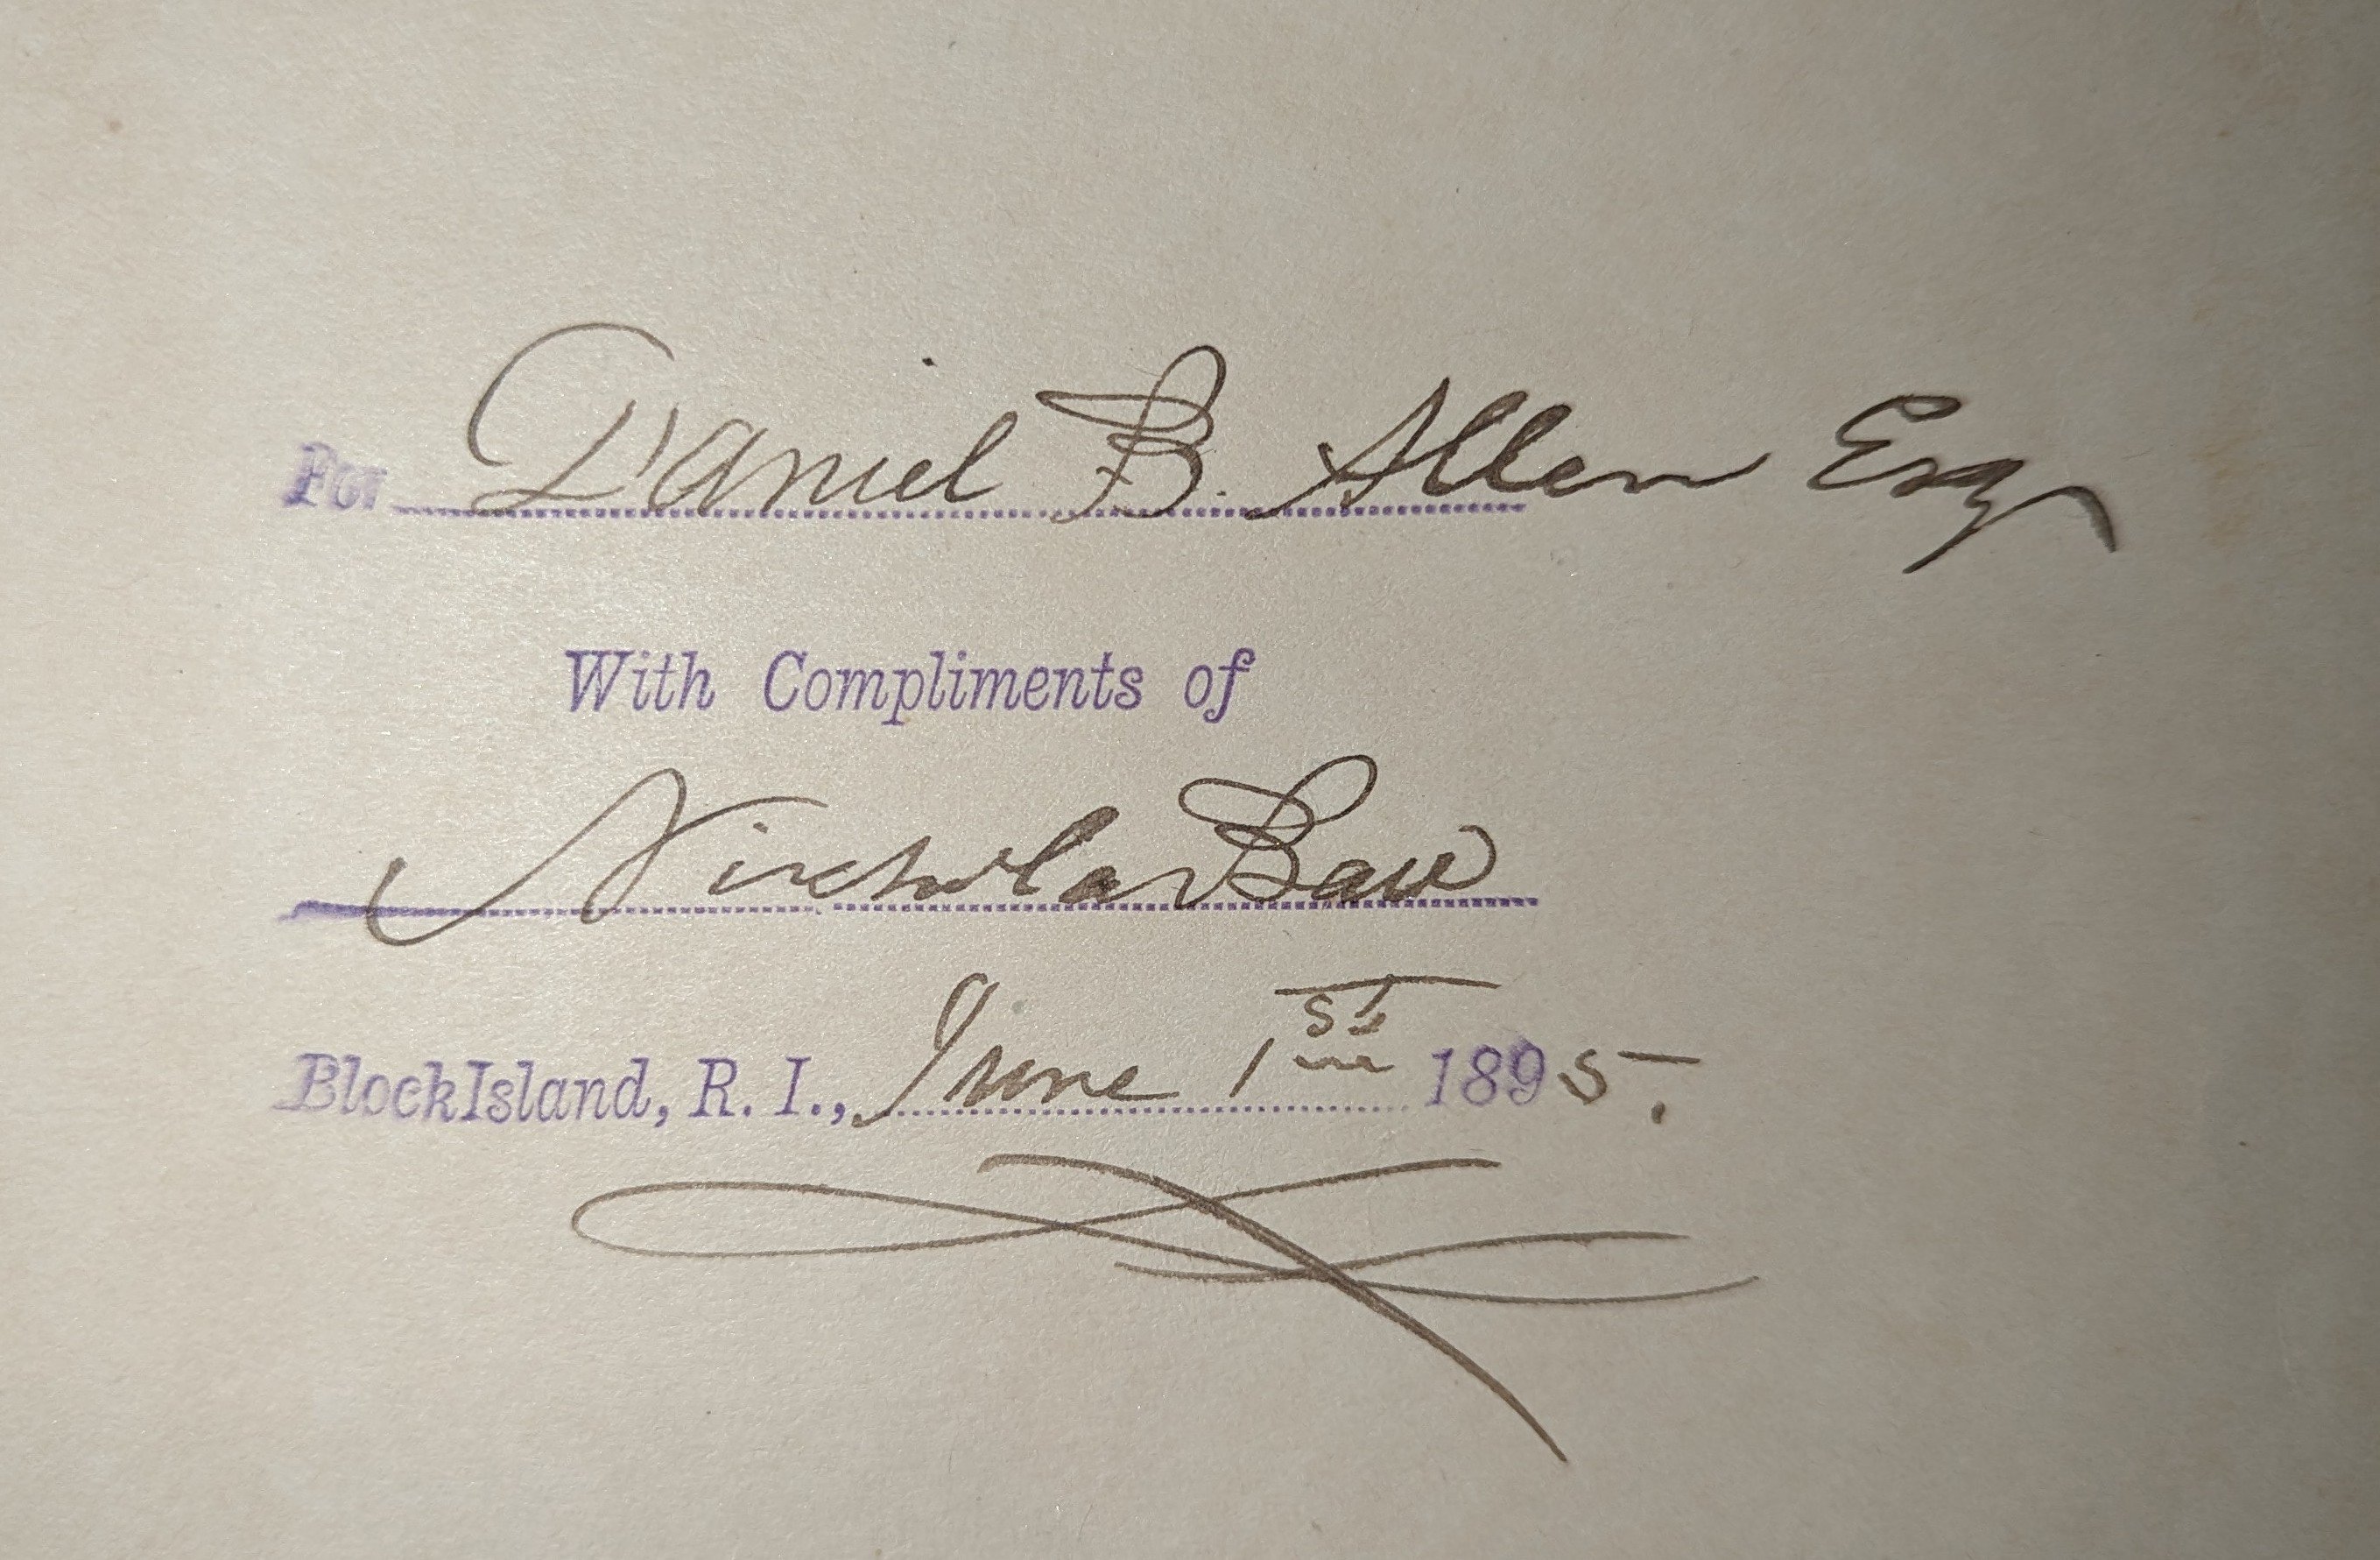 For Daniel B. Allen Esq
With Compliments of
Nicholas Ball
Block Island, R. I., June 1st 1895.